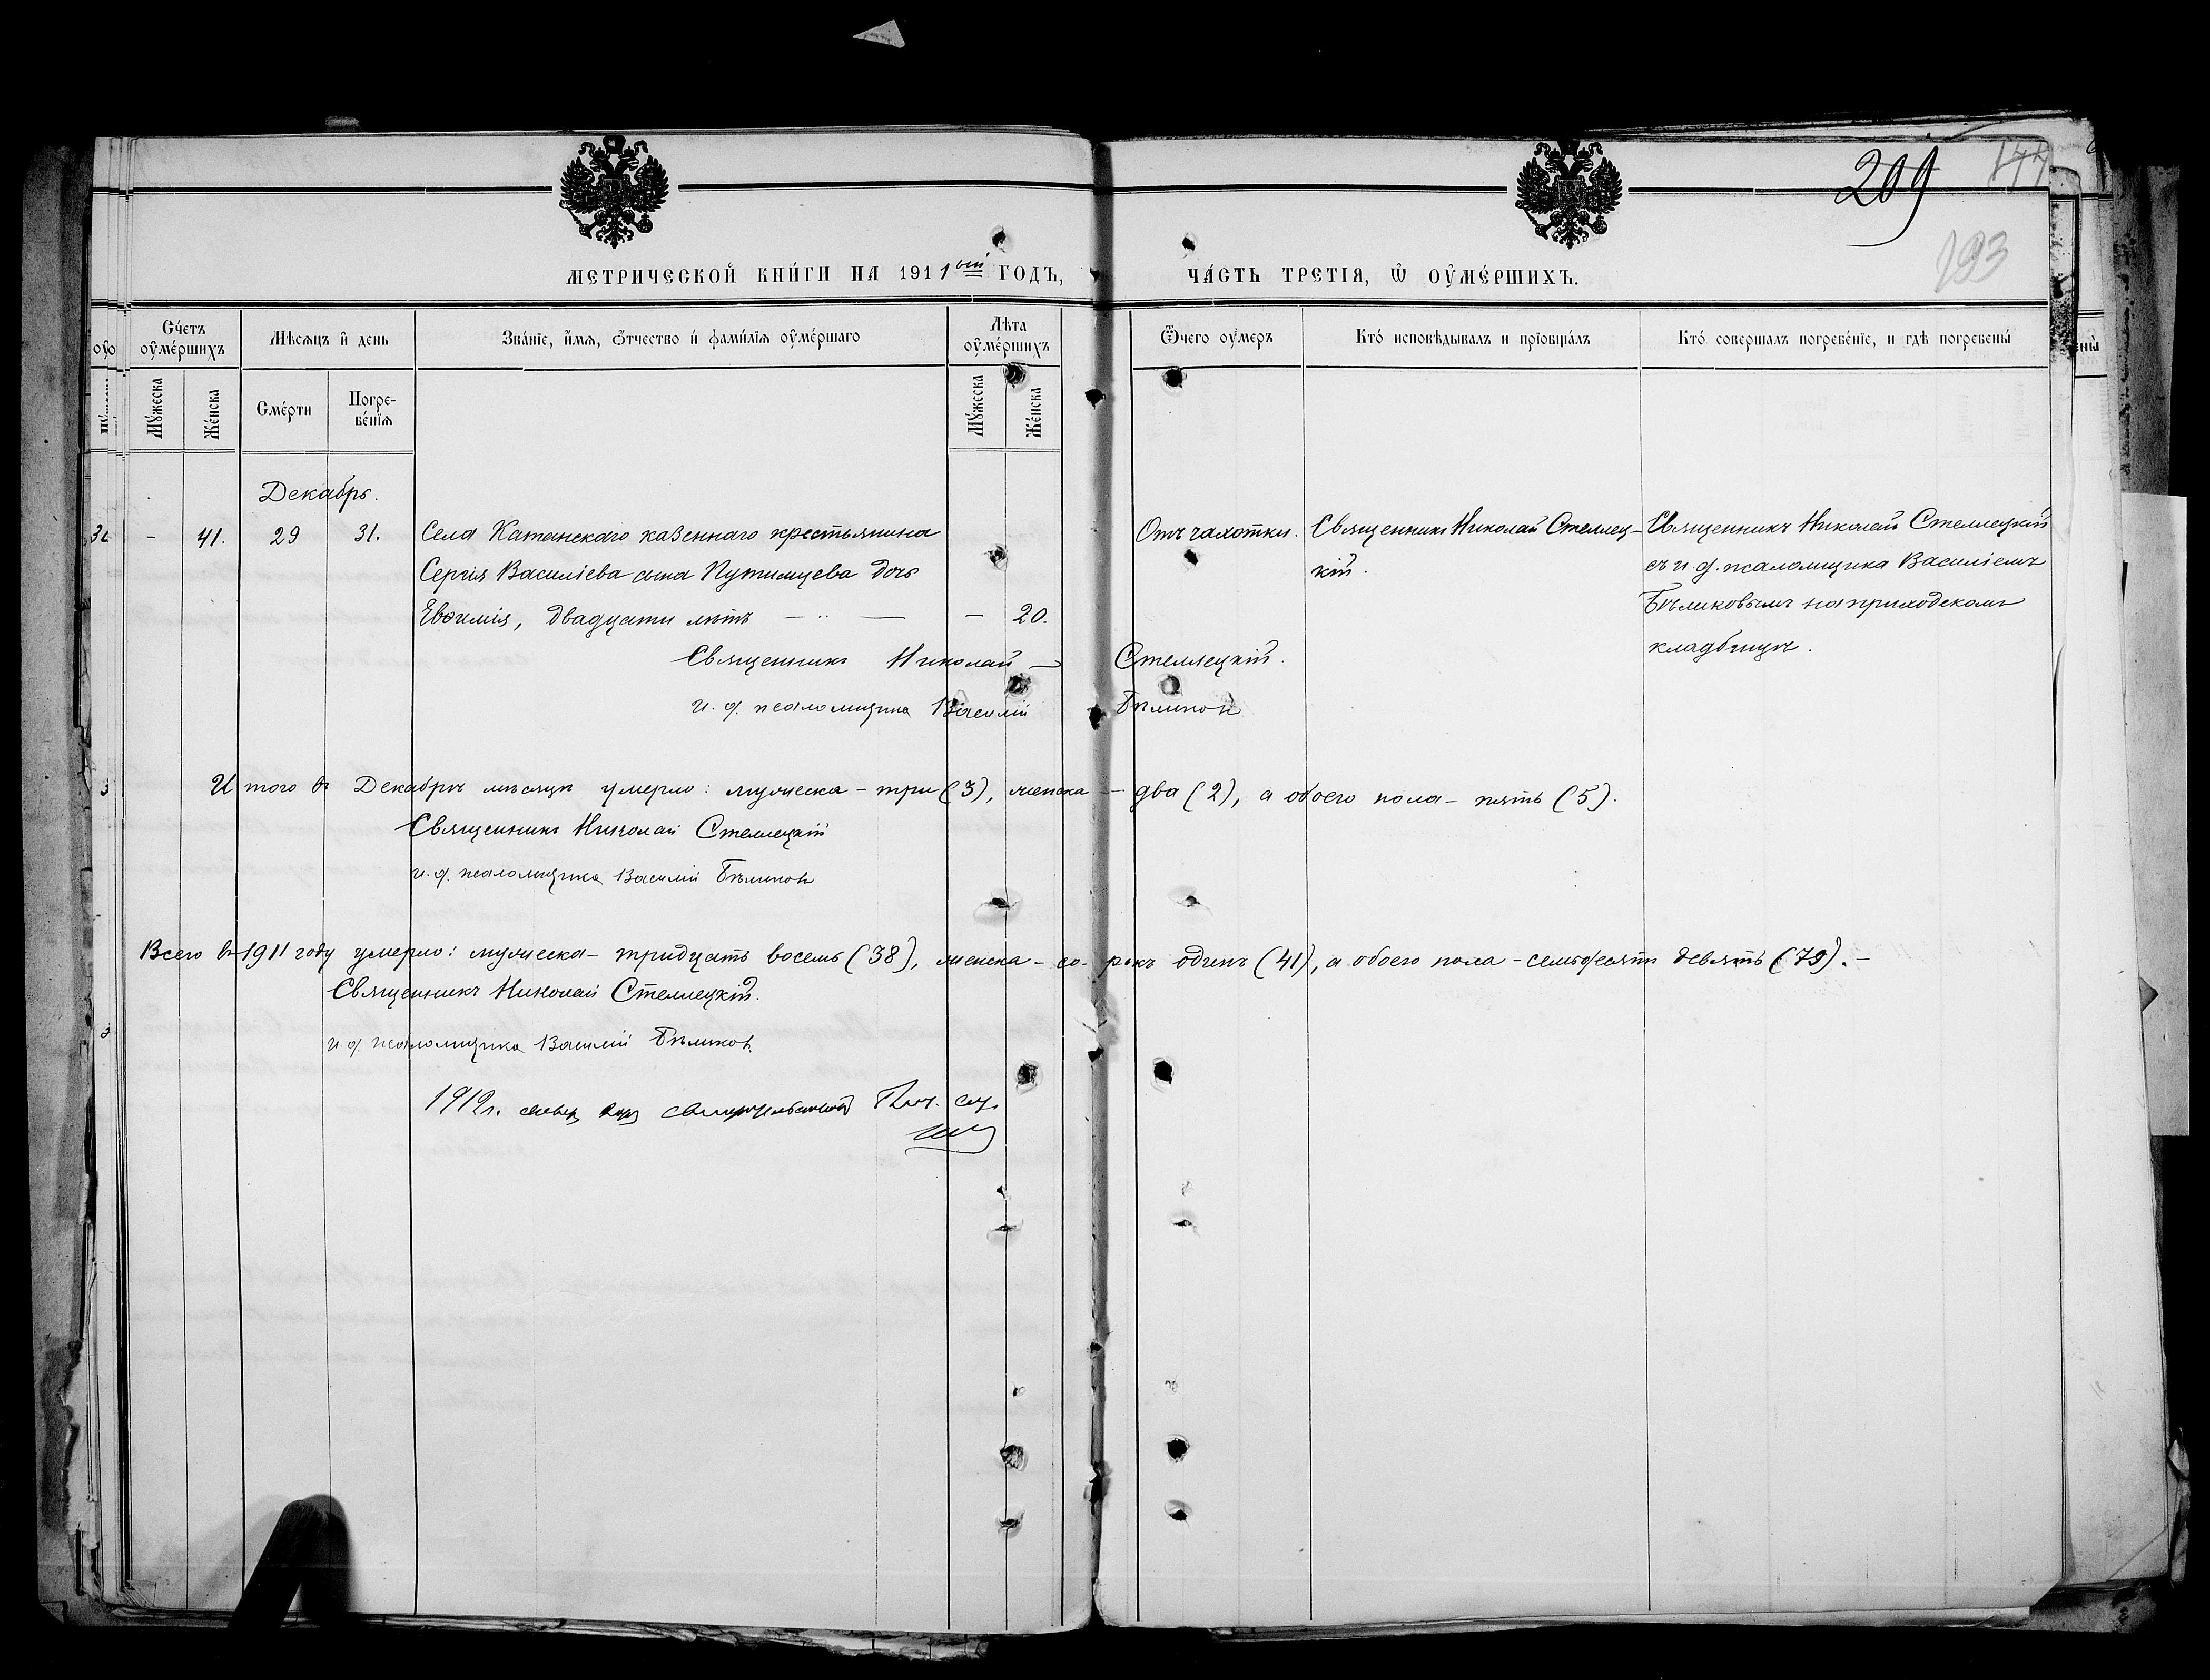 209
193
МЕТРИЧЕСКОЙ КНИ́ГИ НА 1911ый ГОДЪ,
ЧА́СТЬ ТРЕТІЯ, Ѡ ОУМЕ́РШИХЪ.
Сче́тъ оумершихъ
Мужеска
Женска
Мѣсяцъ и день
Сме́рти
Погре-
бе́нія
Зва́ніе, имя, отчество и фами́лія оуме́ршаго
Лѣта оуме́ршихъ
Мужеска
Женска
Ѿчего оумеръ
Кто́ исповѣдывалъ и пріобща́лъ
Кто́ совершалъ погребе́ніе, и гдѣ погребены́
Декабрь.
- 41. 29 31. Села Катанскаго казеннаго крестьянина
Сергія Василіева сына Путимцева дочь
Евѳимія, двадцати лѣтъ — 20.
Отъ чахотки.
Священникъ Николай Стеллец-
кій.
Священникъ Николай Стеллецкій
съ и. д. псаломщика Василіемъ
Бѣликовымъ на приходскомъ
кладбищѣ.
Священникъ Николай — Стеллецкій.
и. д. псаломщика Василій Бѣликовъ
Итого въ Декабрѣ мѣсяцѣ умерло: мужеска - три (3), женска - два (2), а обоего пола - пять (5).
Священникъ Николай Стеллецкій
и. д. псаломщика Василій Бѣликовъ
Всего въ 1911 году умерло: мужеска - тридцать восемь (38), женска - со- рокъ одинъ (41), а обоего пола - семьдесятъ девять (79). -
Священникъ Николай Стеллецкій.
и. д. псаломщика Василій Бѣликовъ.
1912 г.